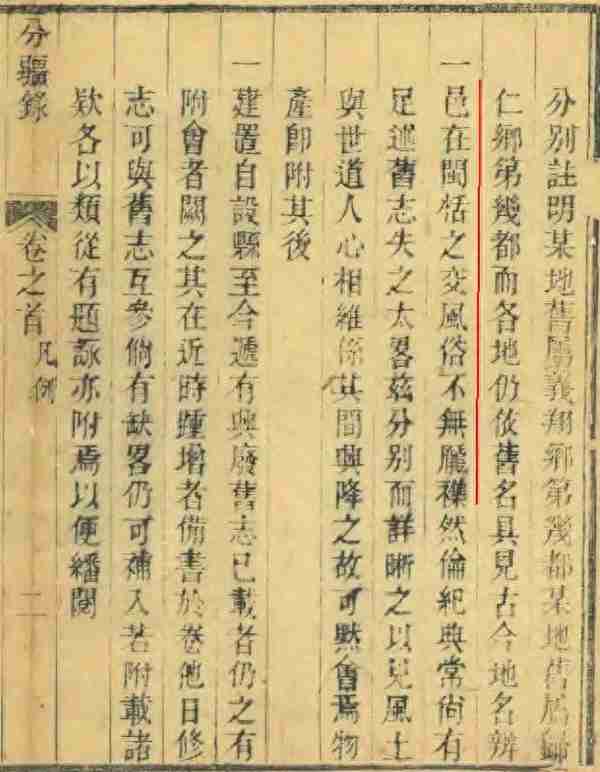 分別註明某地舊屬義翔鄉第幾都某地舊屬歸
仁鄉第幾都而各地仍依舊名具見古今地名辨
一邑在閩括之交風俗不無龐襍然倫紀典常尚有
足述舊志失之太畧茲分別而詳晰之以見風土
與世道人心相維係其間興降之故可默會焉物
產即附其後
一建置自設縣至今遞有興廢舊志已載者仍之有
附會者闕之其在近時踵增者備書於卷他日修
志可與舊志互參倘有缺畧仍可補入若附載諸
欵各以類從有題詠亦附焉以便繙閱
分疆錄
卷之首 凡例 二